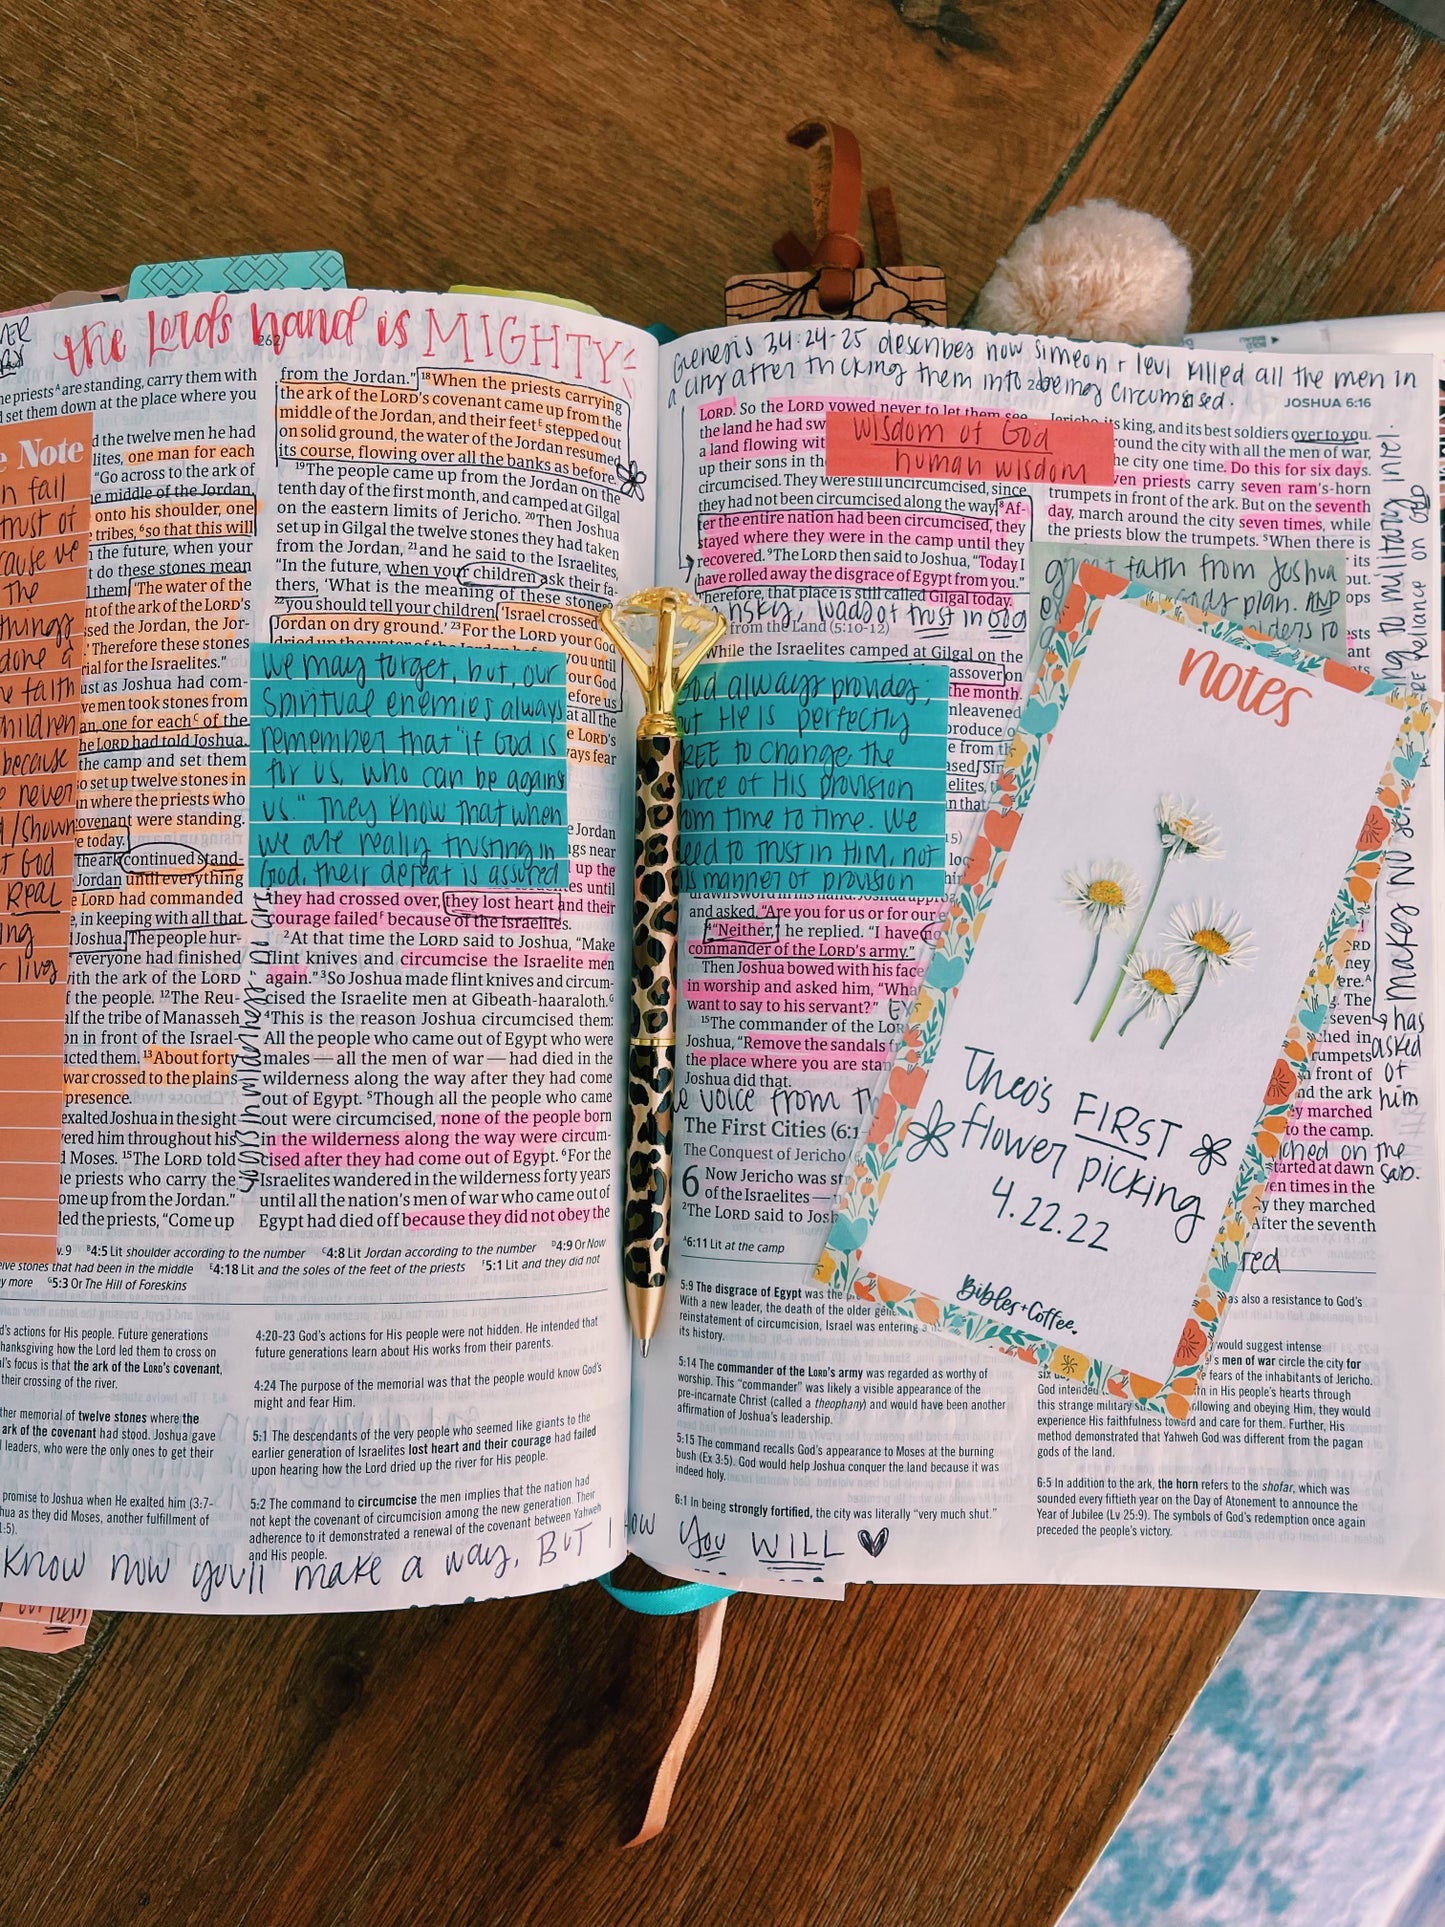 the Lord's hand is MIGHTY
262
he priests ᴬ are standing, carry them with
d set them down at the place where you
e Note
n fall
trust of
cause we
the
things
done &
e faith
children
because
e never
/shown
t God
REAL
ing
r lives
d the twelve men he had
lites, one man for each
"Go across to the ark of
e middle of the Jordan,
onto his shoulder, one
e tribes, ⁶so that this will
n the future, when your
t do these stones mean
l them, 'The water of the
nt of the ark of the LORD's
ssed the Jordan, the Jor-
.' Therefore these stones
rial for the Israelites."
ust as Joshua had com-
ve men took stones from
an, one for each ᶜ of the
he LORD had told Joshua.
the camp and set them
o set up twelve stones in
n where the priests who
ovenant were standing.
e today.
the ark continued stand-
Jordan until everything
e LORD had commanded
e, in keeping with all that
Joshua. The people hur-
everyone had finished
with the ark of the LORD
f the people. ¹²The Reu-
alf the tribe of Manasseh
on in front of the Israel-
ucted them. ¹³About forty
war crossed to the plains
presence.
exalted Joshua in the sight
vered him throughout his
d Moses. ¹⁵The LORD told
he priests who carry the
ome up from the Jordan."
ded the priests, "Come up
from the Jordan." ¹⁸When the priests carrying
the ark of the LORD's covenant came up from the
middle of the Jordan, and their feet ᴱ stepped out
on solid ground, the water of the Jordan resumed
its course, flowing over all the banks as before.
¹⁹The people came up from the Jordan on the
tenth day of the first month, and camped at Gilgal
on the eastern limits of Jericho. ²⁰Then Joshua
set up in Gilgal the twelve stones they had taken
from the Jordan, ²¹and he said to the Israelites,
"In the future, when your children ask their fa-
thers, 'What is the meaning of these stones?'
²²you should tell your children, 'Israel crossed the
Jordan on dry ground.' ²³For the LORD your God
we may forget, but, our
spiritual enemies always
remember that "if God is
for us, who can be against
us." They know that when
we are really trusting in
God, their defeat is assured
they had crossed over, they lost heart and their
courage failed ᶠ because of the Israelites.
²At that time the LORD said to Joshua, "Make
flint knives and circumcise the Israelite men
again." ³So Joshua made flint knives and circum-
cised the Israelite men at Gibeath-haaraloth.ᴳ
⁴This is the reason Joshua circumcised them:
All the people who came out of Egypt who were
males — all the men of war — had died in the
wilderness along the way after they had come
out of Egypt. ⁵Though all the people who came
out were circumcised, none of the people born
in the wilderness along the way were circum-
cised after they had come out of Egypt. ⁶For the
Israelites wandered in the wilderness forty years
until all the nation's men of war who came out of
Egypt had died off because they did not obey the
v. 9 ᴮ4:5 Lit shoulder according to the number ᶜ4:8 Lit Jordan according to the number ᴰ4:9 Or Now
elve stones that had been in the middle ᴱ4:18 Lit and the soles of the feet of the priests ᶠ5:1 Lit and they did not
y more ᴳ5:3 Or The Hill of Foreskins
d's actions for His people. Future generations
hanksgiving how the Lord led them to cross on
l's focus is that the ark of the LORD's covenant,
their crossing of the river.
ther memorial of twelve stones where the
ark of the covenant had stood. Joshua gave
l leaders, who were the only ones to get their
promise to Joshua when He exalted him (3:7-
hua as they did Moses, another fulfillment of
1:5).
4:20-23 God's actions for His people were not hidden. He intended that
future generations learn about His works from their parents.
4:24 The purpose of the memorial was that the people would know God's
might and fear Him.
5:1 The descendants of the very people who seemed like giants to the
earlier generation of Israelites lost heart and their courage had failed
upon hearing how the Lord dried up the river for His people.
5:2 The command to circumcise the men implies that the nation had
not kept the covenant of circumcision among the new generation. Their
adherence to it demonstrated a renewal of the covenant between Yahweh
and His people.
Know how you'll make a way, BUT I know
Genesis 34:24-25 describes how Simeon + Levi killed all the men in
a city after tricking them into being circumcised.
JOSHUA 6:16
LORD. So the LORD vowed never to let them see
the land he had sw
a land flowing wit
up their sons in th
circumcised. They were still uncircumcised, since
they had not been circumcised along the way. ⁸Af-
ter the entire nation had been circumcised, they
stayed where they were in the camp until they
recovered. ⁹The LORD then said to Joshua, "Today I
have rolled away the disgrace of Egypt from you."
Therefore, that place is still called Gilgal today.
wisdom of God
human wisdom
risky, loads of trust in God
from the Land (5:10-12)
While the Israelites camped at Gilgal on the
God always provides;
but He is perfectly
FREE to change the
source of His provision
from time to time. We
need to trust in HIM, not
His manner of provision
and asked, "Are you for us or for our e
¹⁴"Neither," he replied. "I have no
commander of the LORD's army."
Then Joshua bowed with his face
in worship and asked him, "Wha
want to say to his servant?"
¹⁵The commander of the LOR
Joshua, "Remove the sandals f
the place where you are stan
Joshua did that.
voice from th
The First Cities (6:1-
The Conquest of Jericho
6 Now Jericho was st
of the Israelites —
²The LORD said to Josh
ᴬ6:11 Lit at the camp
Jericho, its king, and its best soldiers over to you.
round the city with all the men of war,
the city one time. Do this for six days.
ven priests carry seven ram's-horn
trumpets in front of the ark. But on the seventh
day, march around the city seven times, while
the priests blow the trumpets. ⁵When there is
great faith from Joshua
God's plan. AND
notes
Theo's FIRST
flower picking
4.22.22
Bibles+Coffee.
makes NO sense
has
asked
of
him
seven
ched in
rumpets
n front of
nd the ark
y marched
to the camp.
tarted at dawn
en times in the
y they marched
After the seventh
5:9 The disgrace of Egypt was the
With a new leader, the death of the older gene
reinstatement of circumcision, Israel was entering a
its history.
5:14 The commander of the LORD's army was regarded as worthy of
worship. This "commander" was likely a visible appearance of the
pre-incarnate Christ (called a theophany) and would have been another
affirmation of Joshua's leadership.
5:15 The command recalls God's appearance to Moses at the burning
bush (Ex 3:5). God would help Joshua conquer the land because it was
indeed holy.
6:1 In being strongly fortified, the city was literally "very much shut."
as also a resistance to God's
would suggest intense
's men of war circle the city for
six da fears of the inhabitants of Jericho.
God intended th in His people's hearts through
this strange military s ollowing and obeying Him, they would
experience His faithfulness toward and care for them. Further, His
method demonstrated that Yahweh God was different from the pagan
gods of the land.
6:5 In addition to the ark, the horn refers to the shofar, which was
sounded every fiftieth year on the Day of Atonement to announce the
Year of Jubilee (Lv 25:9). The symbols of God's redemption once again
preceded the people's victory.
You WILL